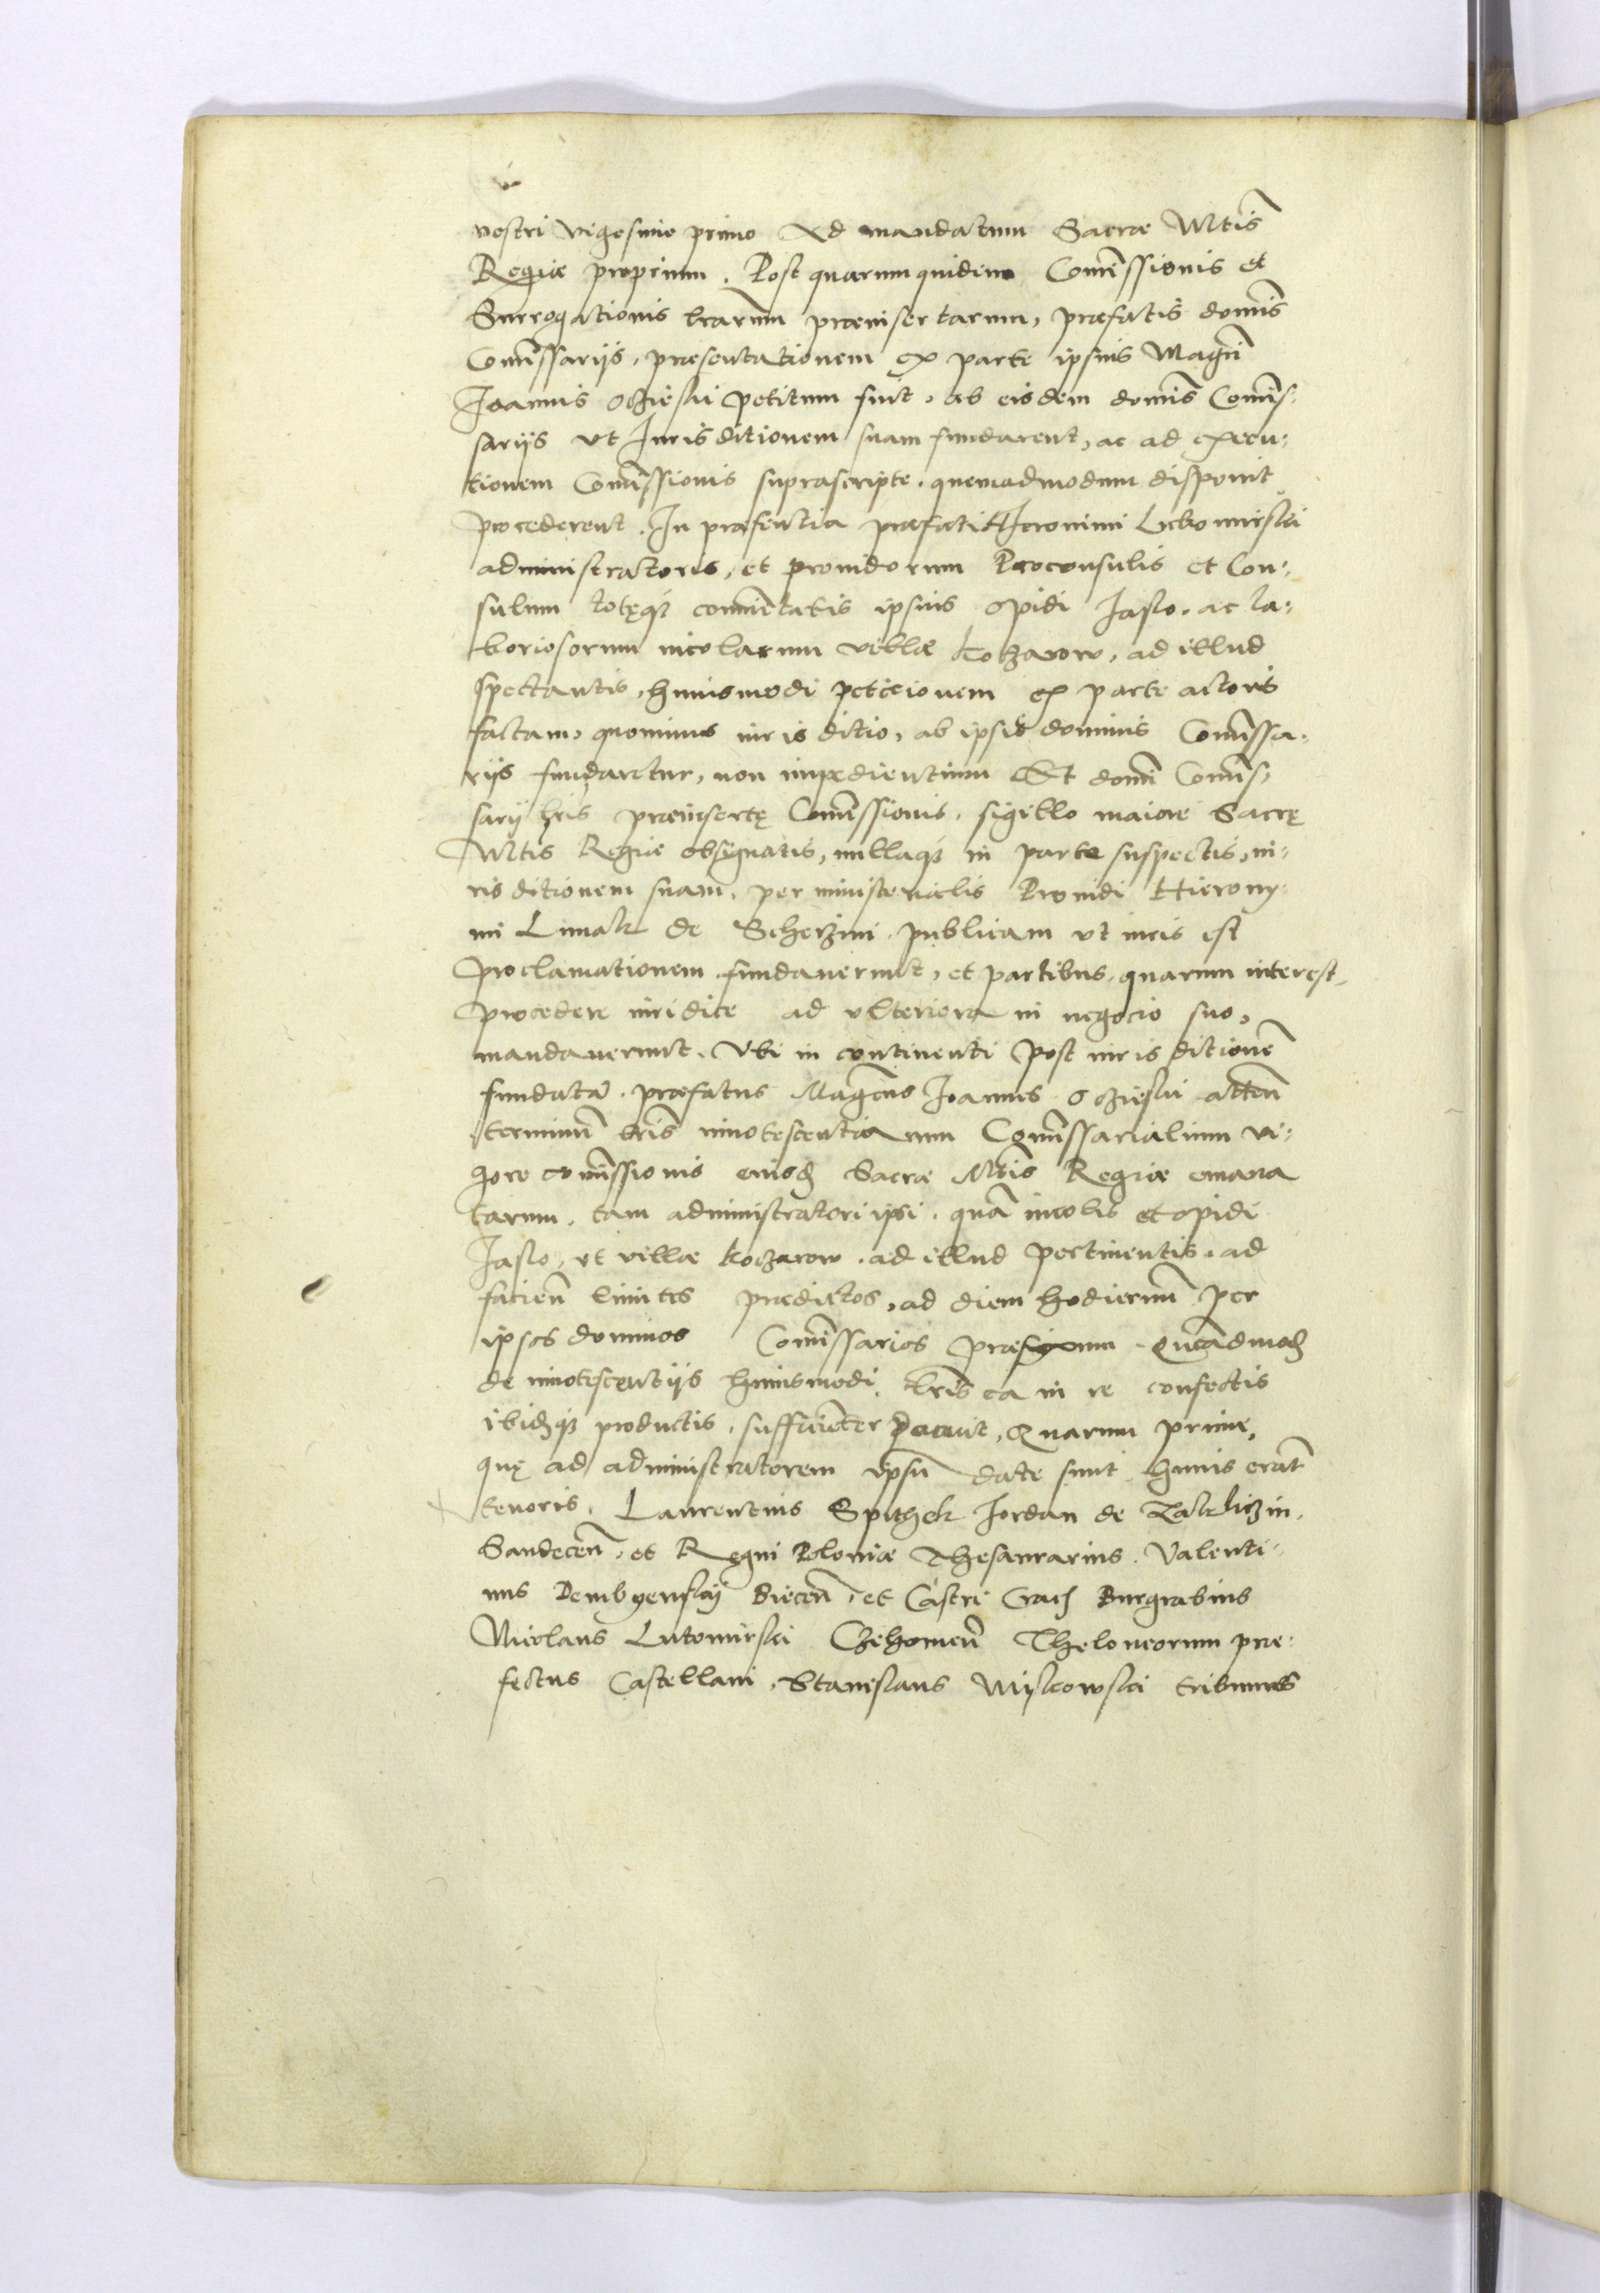 nostri vigesimo primo Ad mandatum Sacræ Mtis
Regiæ proprium. Post quarum quidem Comissionis et
Surrogationis lrarum præinsertarum, præfatis domis
Comissarijs, præsentationem ex parte ipsius Magci
Joannis Oczieski petitum fuit, ab eisdem domis Comis:
sarijs vt Jurisditionem suam fundarent, ac ad execu:
tionem Comissionis suprascripte, quemadmodum disponit
procederent. In præsentia præfati Hieronimi
administratoris, et prouidorum Proconsulis et Con:
sulum totęqz comunitatis ipsius opidi Jaslo, ac la:
boriosorum incolarum villæ Koczarow, ad illud
spectantis, huiusmodi peticionem ex parte actoris
factam, quominus iurisditio, ab ipsis dominis Comissa:
rijs fundaretur, non impedientium Et domi Comis:
sarij lris præinsertę Comissionis, sigillo maiore Sacrę
Mtis Regiæ obsignatis, nullaqz in parte suspectis, iu:
risditionem suam, per ministerialis Prouidi Hierony:
mi Limak de Scherzini publicam vt iuris est
proclamationem fundauerunt, et partibus quarum interest,
procedere iuridice ad vlteriora in negocio suo,
mandauerunt. Vbi in continenti post iurisditione
fundata, præfatus Magcus Joannes Oczieski atten
terminu lris innotescentiarum Comissarialium vi:
gore comissionis eiusd Sacræ Mtis Regiæ emana
tarum, tam administratori ipsi, qua incolis et opidi
Jaslo, vt villæ Koczarow, ad illud pertinentis, ad
facien limites prædictos, ad diem hodiernu per
ipsos dominos Comissarios præfixum. Queadmod
de innotescentijs huiusmodi, lris ea in re confectis
ibidqz productis, sufficieter docuit, Quarum primæ,
quę ad administratorem ipsu date sunt huius erat
tenoris. Laurentius Spithek Jordan de Zakliczin,
Sandecen, et Regni Poloniæ Thesaurarius. Valenti:
nus Dembyenskij Biecen, et Castri Crac Burgrabius
Nicolaus Lutomirski Czehomen Theloneorum præ:
fectus Castellani, Stanislaus Miskowski tribunus